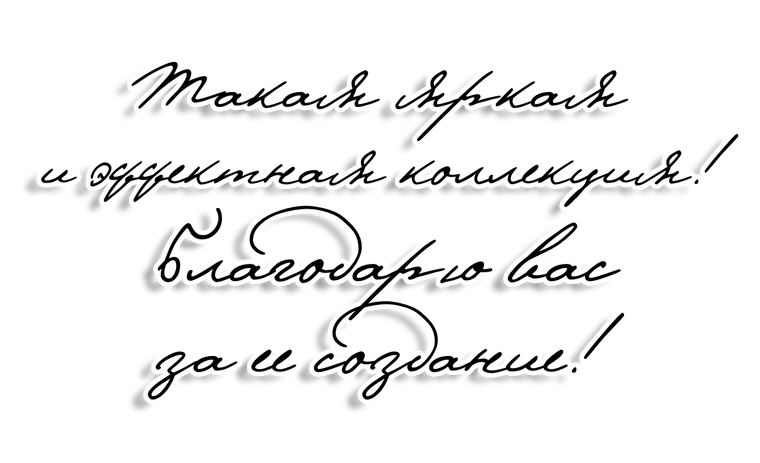 Такая яркая
и эффектная коллекция!
Благодарю вас
за ее создание!